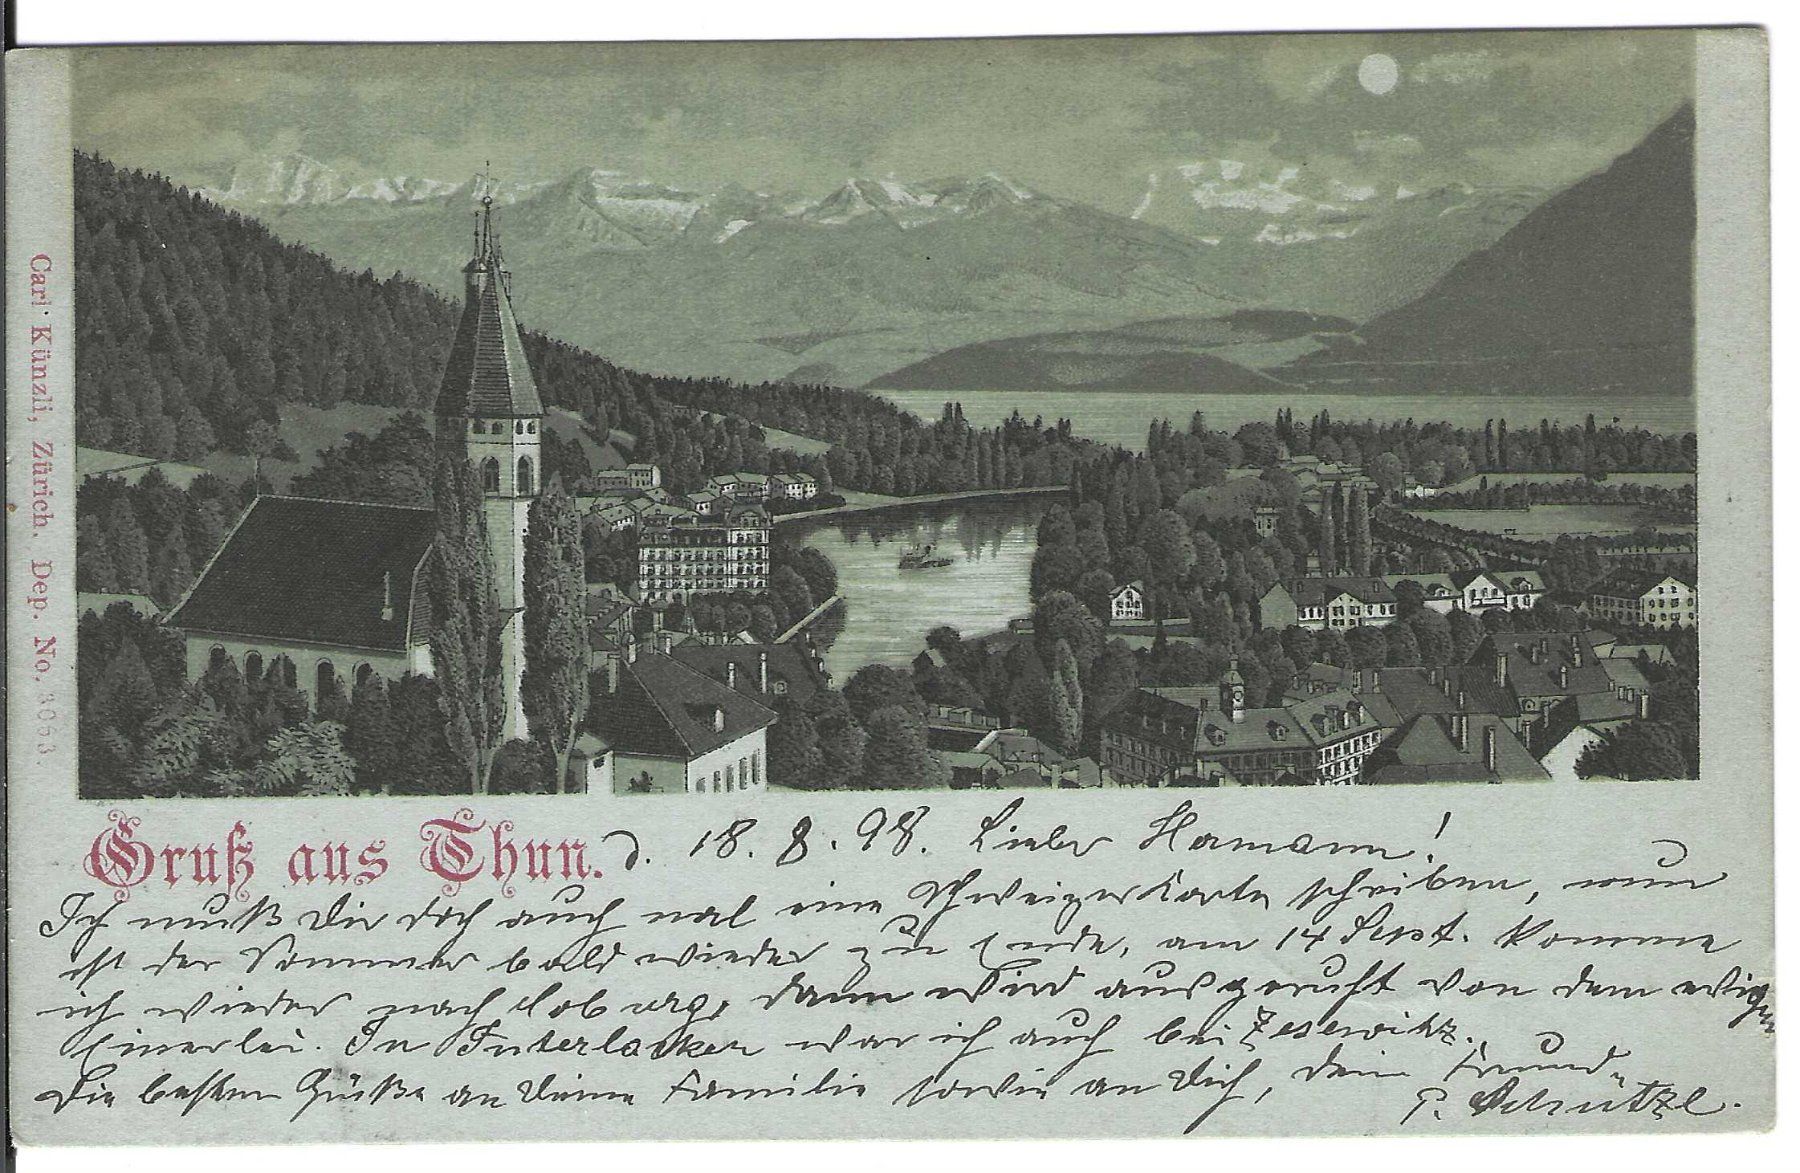 Carl Künzli, Zürich. Dep. No. 3063.
Gruß aus Thun. d. 18. 8. 98. Lieber Hermann!
Ich muß Dir doch auch mal eine Schweizer Karte schreiben, nun
ist der Sommer bald wieder zu Ende, am 14 Sept. komme
ich wieder nach Coburg, dann wird ausgeruht von dem ewigen
Einerlei. In Interlacken war ich auch bei
Die besten Grüße an Deine Familie sowie an Dich, dein Freund
P.